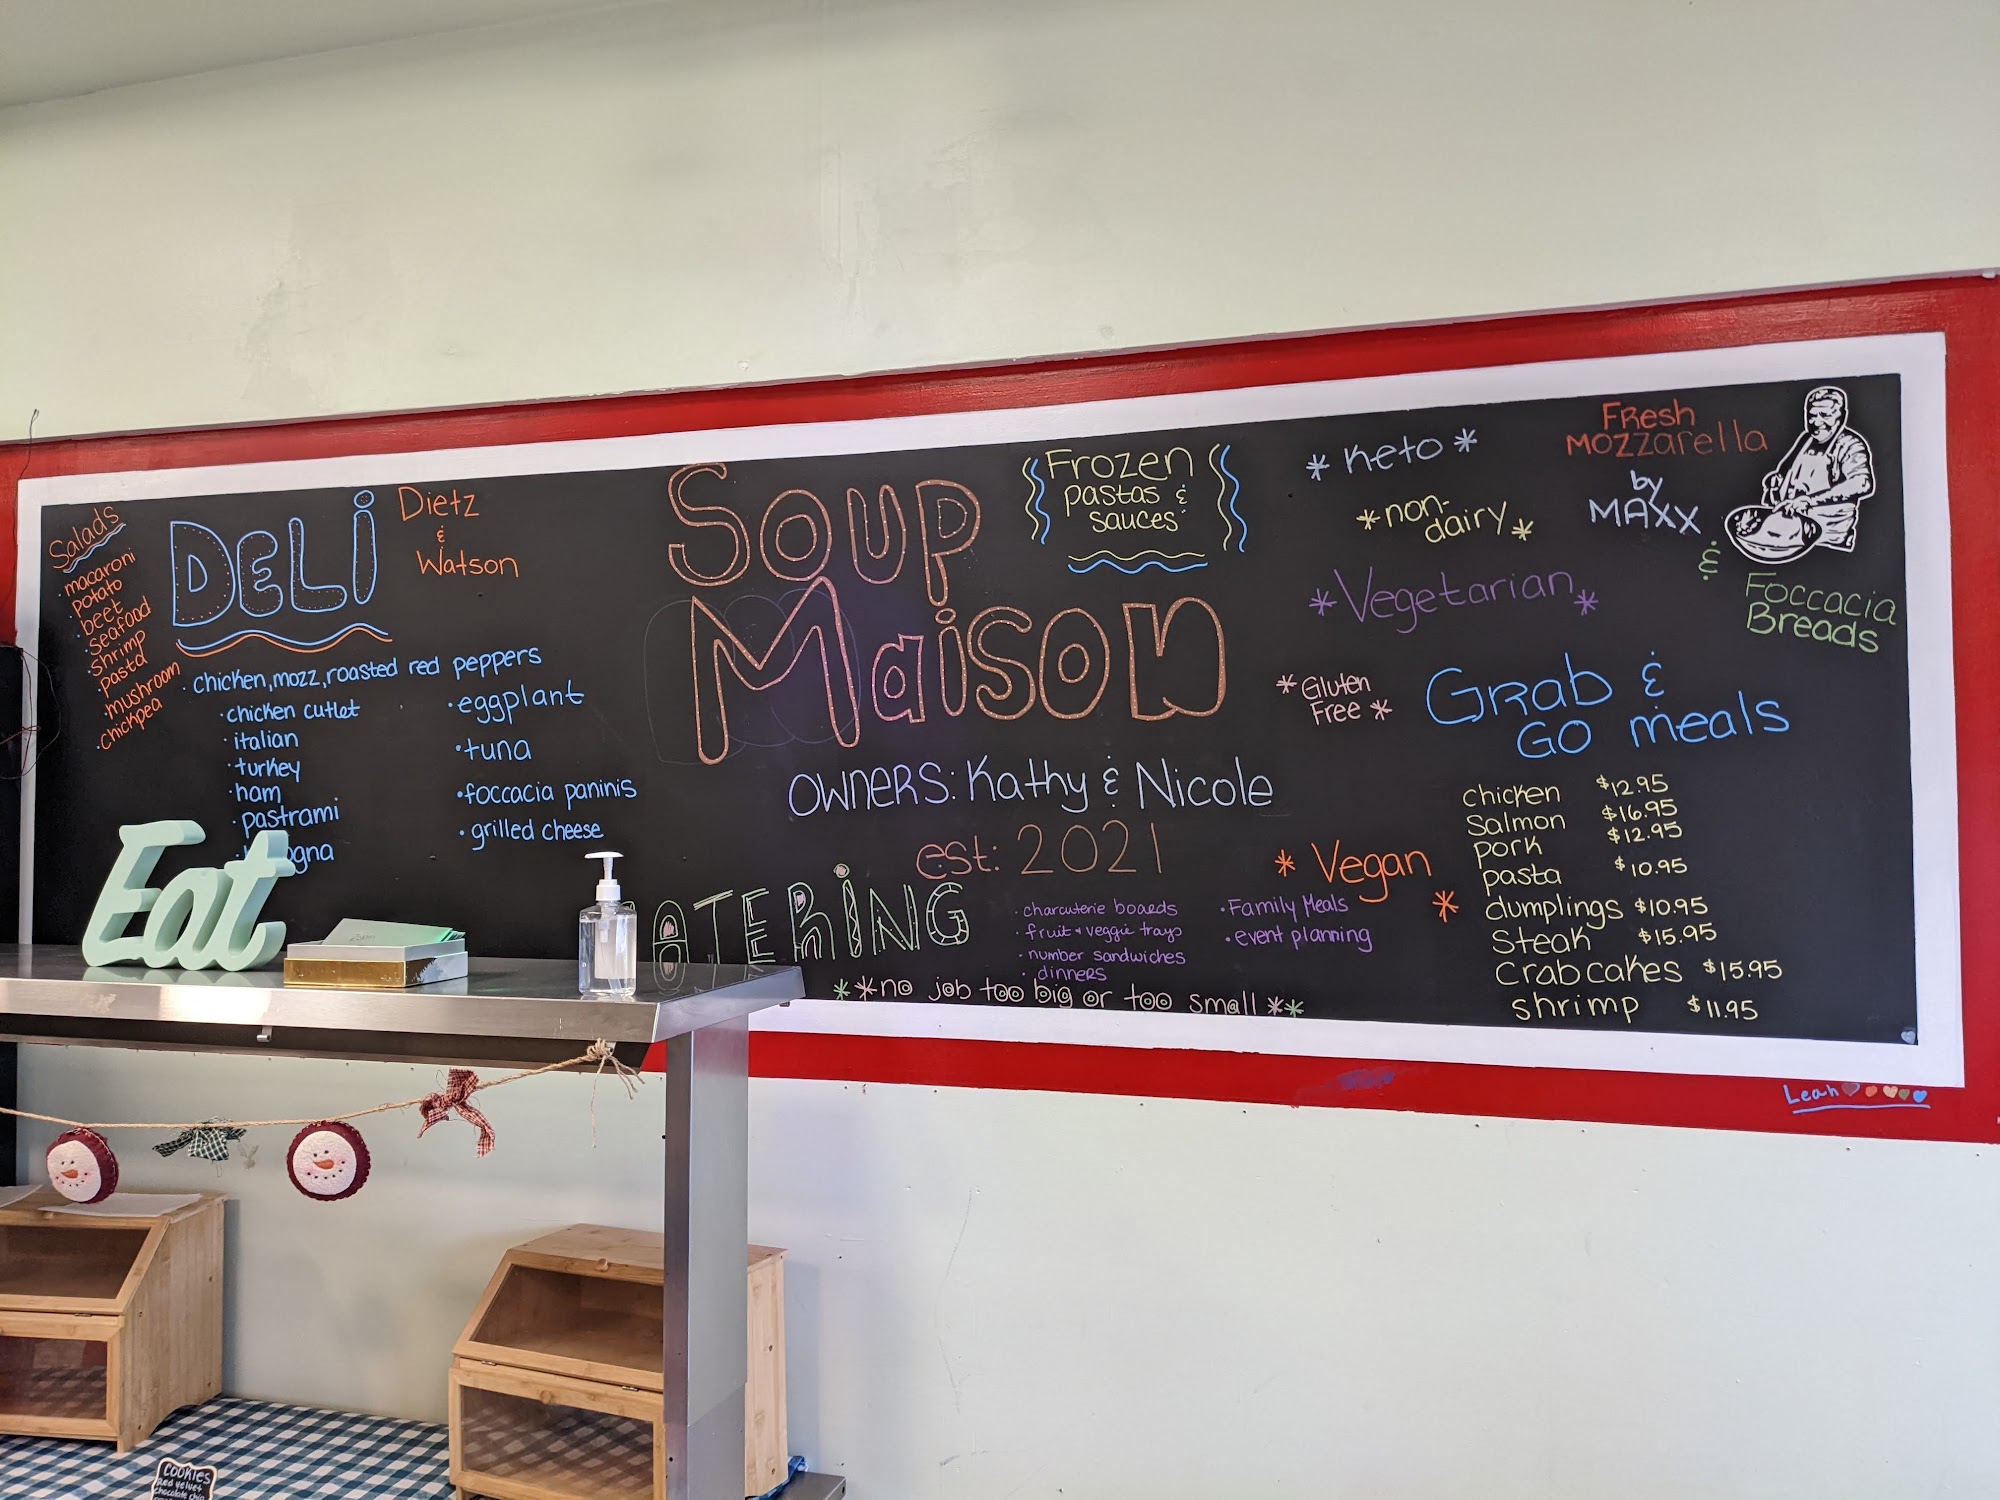 Salads
·macaroni
·potato
·beet
·seafood
·shrimp
·pasta
·mushroom
·chickpea
DELI
Dietz
&
Watson
·chicken, mozz, roasted red peppers
·chicken cutlet
·italian
·turkey
·ham
·pastrami
·eggplant
·tuna
·foccacia paninis
·grilled cheese
Soup
Maison
Owners: Kathy & Nicole
est: 2021
Frozen
pastas &
sauces
*Keto*
*non-
dairy*
*Vegetarian*
*Gluten
Free*
*Vegan
*
Fresh
Mozzarella
by
MAXX
&
Foccacia
Breads
Grab &
Go meals
Chicken $12.95
Salmon $16.95
Pork $12.95
pasta $10.95
dumplings $10.95
Steak $15.95
Crabcakes $15.95
shrimp $11.95
CATERING
·charcuterie boards
·fruit + veggie trays
·number sandwiches
·dinners
·Family Meals
·event planning
**no job too big or too small**
Leah
Eat
COOKIES
Red velvet
Chocolate chip